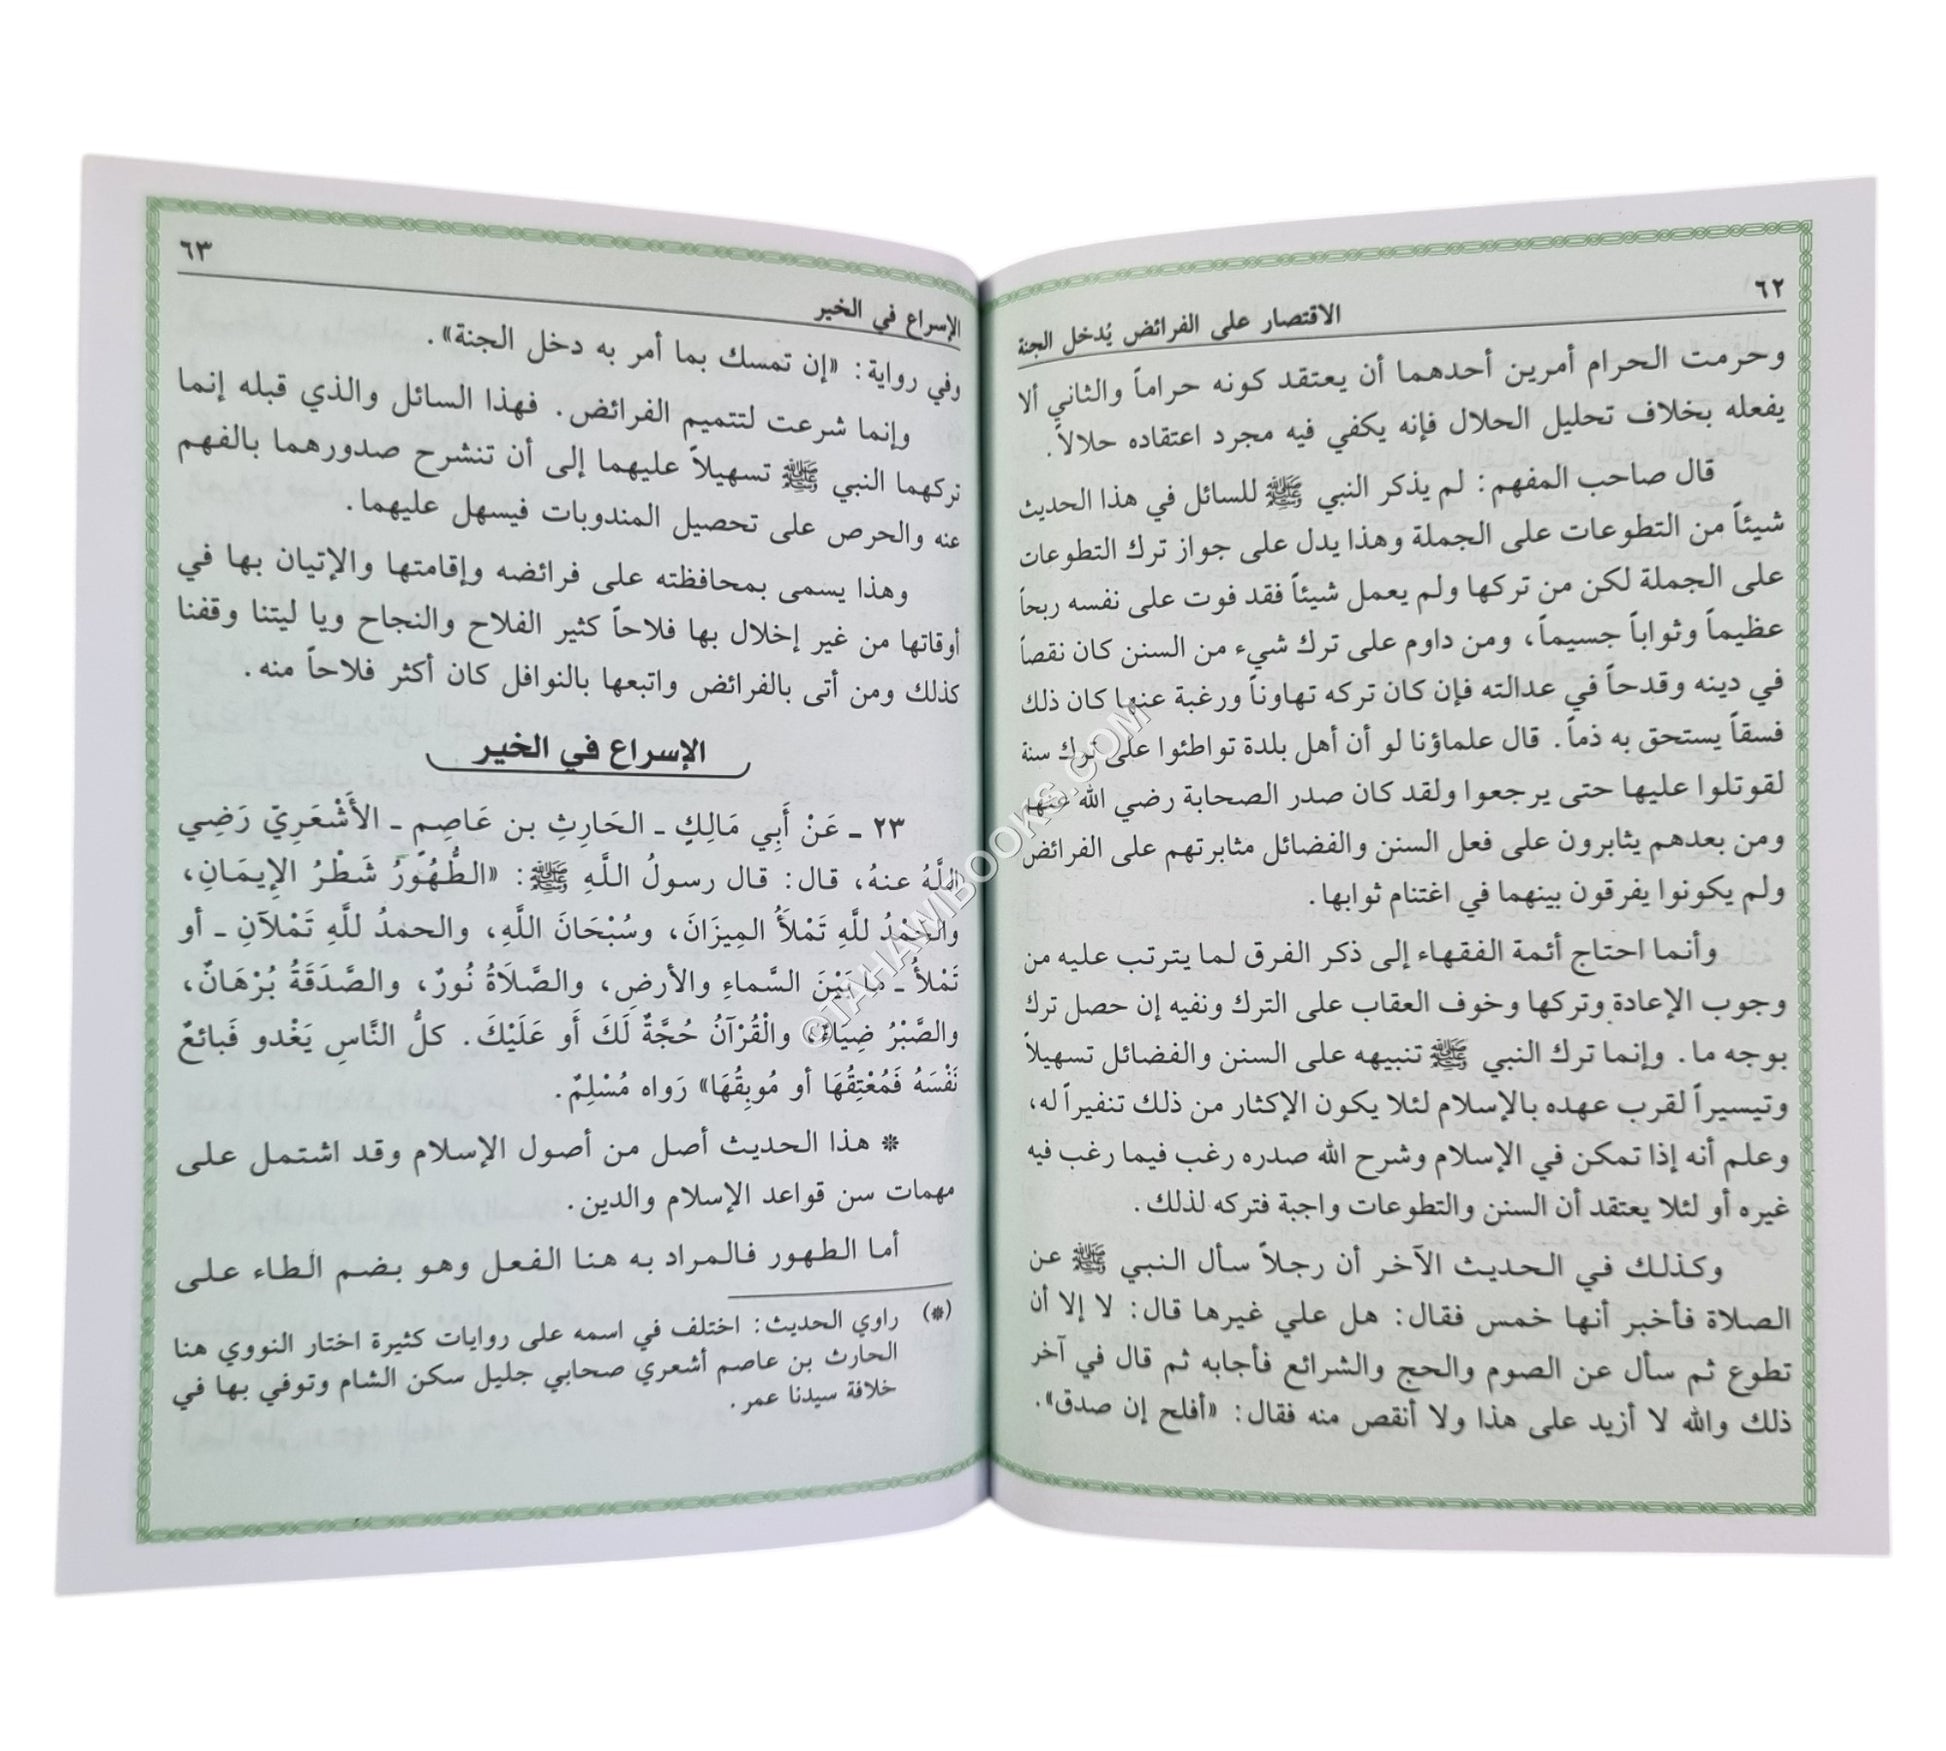 ٦٢
الاقتصار على الفرائض يُدخل الجنة
وحرمت الحرام أمرين أحدهما أن يعتقد كونه حراماً والثاني ألا
يفعله بخلاف تحليل الحلال فإنه يكفي فيه مجرد اعتقاده حلالاً.
قال صاحب المفهم: لم يذكر النبي ﷺ للسائل في هذا الحديث
شيئاً من التطوعات على الجملة وهذا يدل على جواز ترك التطوعات
على الجملة لكن من تركها ولم يعمل شيئاً فقد فوت على نفسه ربحاً
عظيماً وثواباً جسيماً، ومن داوم على ترك شيء من السنن كان نقصاً
في دينه وقدحاً في عدالته فإن كان تركه تهاوناً ورغبة عنها كان ذلك
فسقاً يستحق به ذماً. قال علماؤنا لو أن أهل بلدة تواطئوا على ترك سنة
لقوتلوا عليها حتى يرجعوا ولقد كان صدر الصحابة رضي الله عنهم
ومن بعدهم يثابرون على فعل السنن والفضائل مثابرتهم على الفرائض
ولم يكونوا يفرقون بينهما في اغتنام ثوابها.
وأنما احتاج أئمة الفقهاء إلى ذكر الفرق لما يترتب عليه من
وجوب الإعادة وتركها وخوف العقاب على الترك ونفيه إن حصل ترك
بوجه ما. وإنما ترك النبي ﷺ تنبيهه على السنن والفضائل تسهيلاً
وتيسيراً لقرب عهده بالإسلام لئلا يكون الإكثار من ذلك تنفيراً له،
وعلم أنه إذا تمكن في الإسلام وشرح الله صدره رغب فيما رغب فيه
غيره أو لئلا يعتقد أن السنن والتطوعات واجبة فتركه لذلك.
وكذلك في الحديث الآخر أن رجلاً سأل النبي ﷺ عن
الصلاة فأخبر أنها خمس فقال: هل علي غيرها قال: لا إلا أن
تطوع ثم سأل عن الصوم والحج والشرائع فأجابه ثم قال في آخر
ذلك والله لا أزيد على هذا ولا أنقص منه فقال: «أفلح إن صدق».
٦٣
الإسراع في الخير
وفي رواية: «إن تمسك بما أمر به دخل الجنة».
وإنما شرعت لتتميم الفرائض. فهذا السائل والذي قبله إنما
تركهما النبي ﷺ تسهيلاً عليهما إلى أن تنشرح صدورهما بالفهم
عنه والحرص على تحصيل المندوبات فيسهل عليهما.
وهذا يسمى بمحافظته على فرائضه وإقامتها والإتيان بها في
أوقاتها من غير إخلال بها فلاحاً كثير الفلاح والنجاح ويا ليتنا وقفنا
كذلك ومن أتى بالفرائض واتبعها بالنوافل كان أكثر فلاحاً منه.
الإسراع في الخير
٢٣ ـ عَنْ أَبِي مَالِكٍ ـ الحَارِثِ بن عَاصِمٍ ـ الأَشْعَرِيّ رَضِي
اللَّهُ عنهُ، قال: قال رسولُ اللَّهِ ﷺ: «الطُّهُورُ شَطْرُ الإِيمَانِ،
والحَمْدُ للَّهِ تَمْلأُ المِيزَانَ، وسُبْحَانَ اللَّهِ، والحمدُ للَّهِ تَمْلآنِ ـ أو
تَمْلأُ ـ مَا بَيْنَ السَّماءِ والأرضِ، والصَّلاَةُ نُورٌ، والصَّدَقَةُ بُرْهَانٌ،
والصَّبْرُ ضِيَاءٌ، والْقُرْآنُ حُجَّةٌ لَكَ أَو عَلَيْكَ. كلُّ النَّاسِ يَغْدو فَبائعٌ
نَفْسَهُ فَمُعْتِقُهَا أو مُوبِقُهَا» رَواه مُسْلِمٌ.
* هذا الحديث أصل من أصول الإسلام وقد اشتمل على
مهمات سن قواعد الإسلام والدين.
أما الطهور فالمراد به هنا الفعل وهو بضم الطاء على
(*) راوي الحديث: اختلف في اسمه على روايات كثيرة اختار النووي هنا
الحارث بن عاصم أشعري صحابي جليل سكن الشام وتوفي بها في
خلافة سيدنا عمر.
©TAHAWIBOOKS.COM